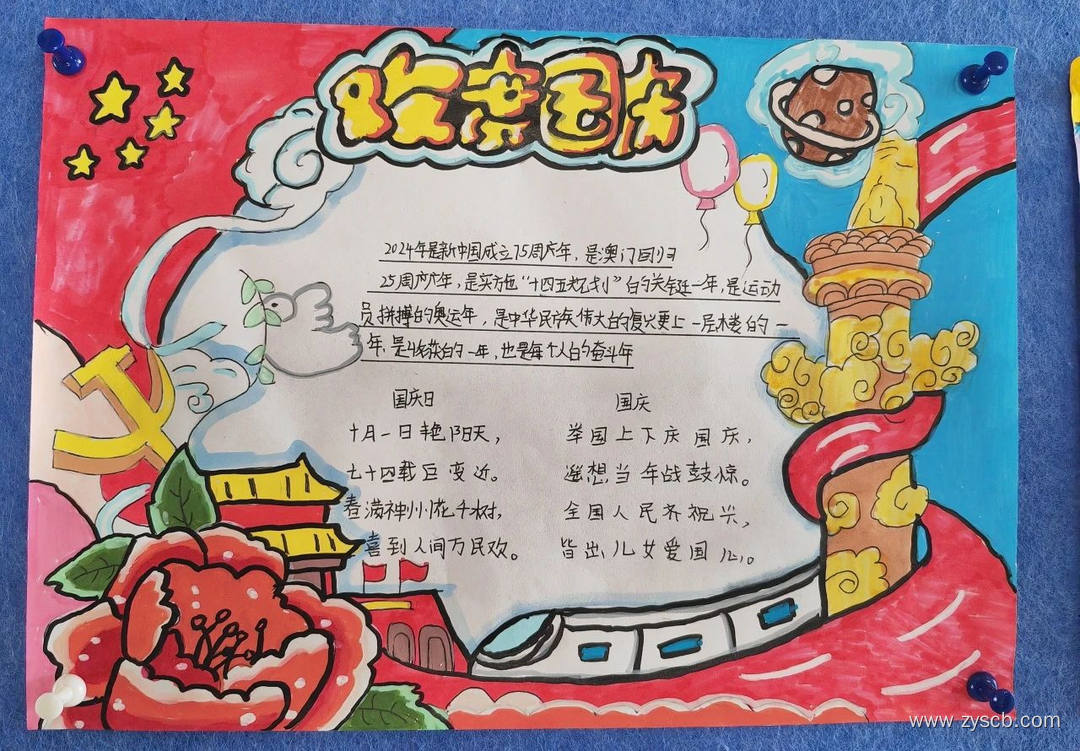 欢乐国庆
2024年是新中国成立75周年，是澳门回归
25周年，是实施"十四五规划"的关键一年，是运动
员拼搏的奥运年，是中华民族伟大的复兴更上一层楼的一
年，是收获的一年，也是每个人的奋斗年
国庆日
十月一日艳阳天，
七十四载巨变近。
春满神州花千树，
喜到人间万民欢。
国庆
举国上下庆国庆，
遥想当年战鼓惊。
全国人民齐祝兴，
皆出儿女爱国心。
www.zyscb.com